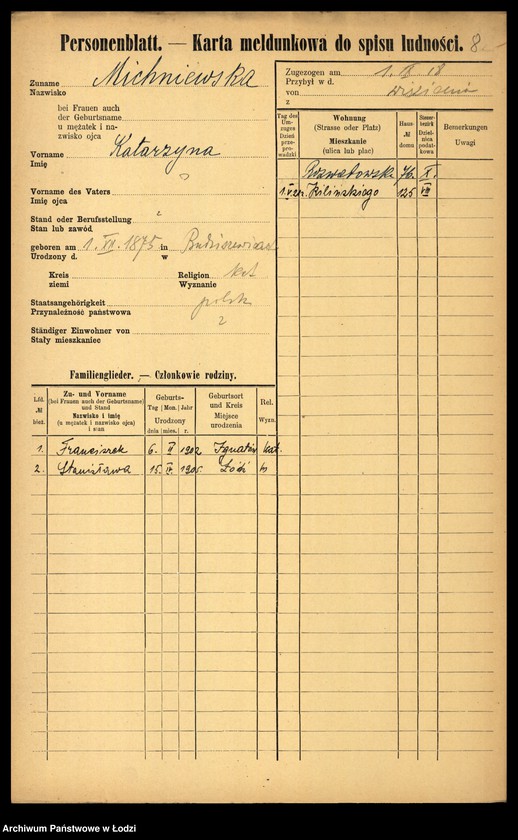 Personenblatt. — Karta meldunkowa do spisu ludności. 8
Zuname Michniewska
Nazwisko
bei Frauen auch
der Geburtsname
u mężatek i na-
zwisko ojca
Vorname Katarzyna
Imię
Vorname des Vaters ?
Imię ojca
Stand oder Berufsstellung
Stan lub zawód
geboren am 1. XII. 1875 in
Urodzony d. w
Kreis Religion kat
ziemi Wyznanie
Staatsangehörigkeit polsk
Przynależność państwowa
Ständiger Einwohner von ?
Stały mieszkaniec
Zugezogen am 18
Przybył w d.
von
z
Tag des Um-zuges Dzień prze-prowadzki
Wohnung
(Strasse oder Platz)
Mieszkanie
(ulica lub plac)
Haus- № domu
Steuer-bezirk Dzielnica podat-kowa
Bemerkungen
Uwagi
76 X.
Kilińskiego 125 VII
Familienglieder. — Członkowie rodziny.
Lfd. № bież.
Zu- und Vorname
(bei Frauen auch der Geburtsname)
und Stand
Nazwisko i imię
(u mężatek i nazwisko ojca)
i stan
Geburts-
Tag Mon. Jahr
Urodzony
dnia mies. r.
Geburtsort
und Kreis
Miejsce
urodzenia
Rel.
Wyzn.
1. Franciszek 6. II 1902 kat.
2. Stanisława 15. IV. 1905. Łódź
Archiwum Państwowe w Łodzi